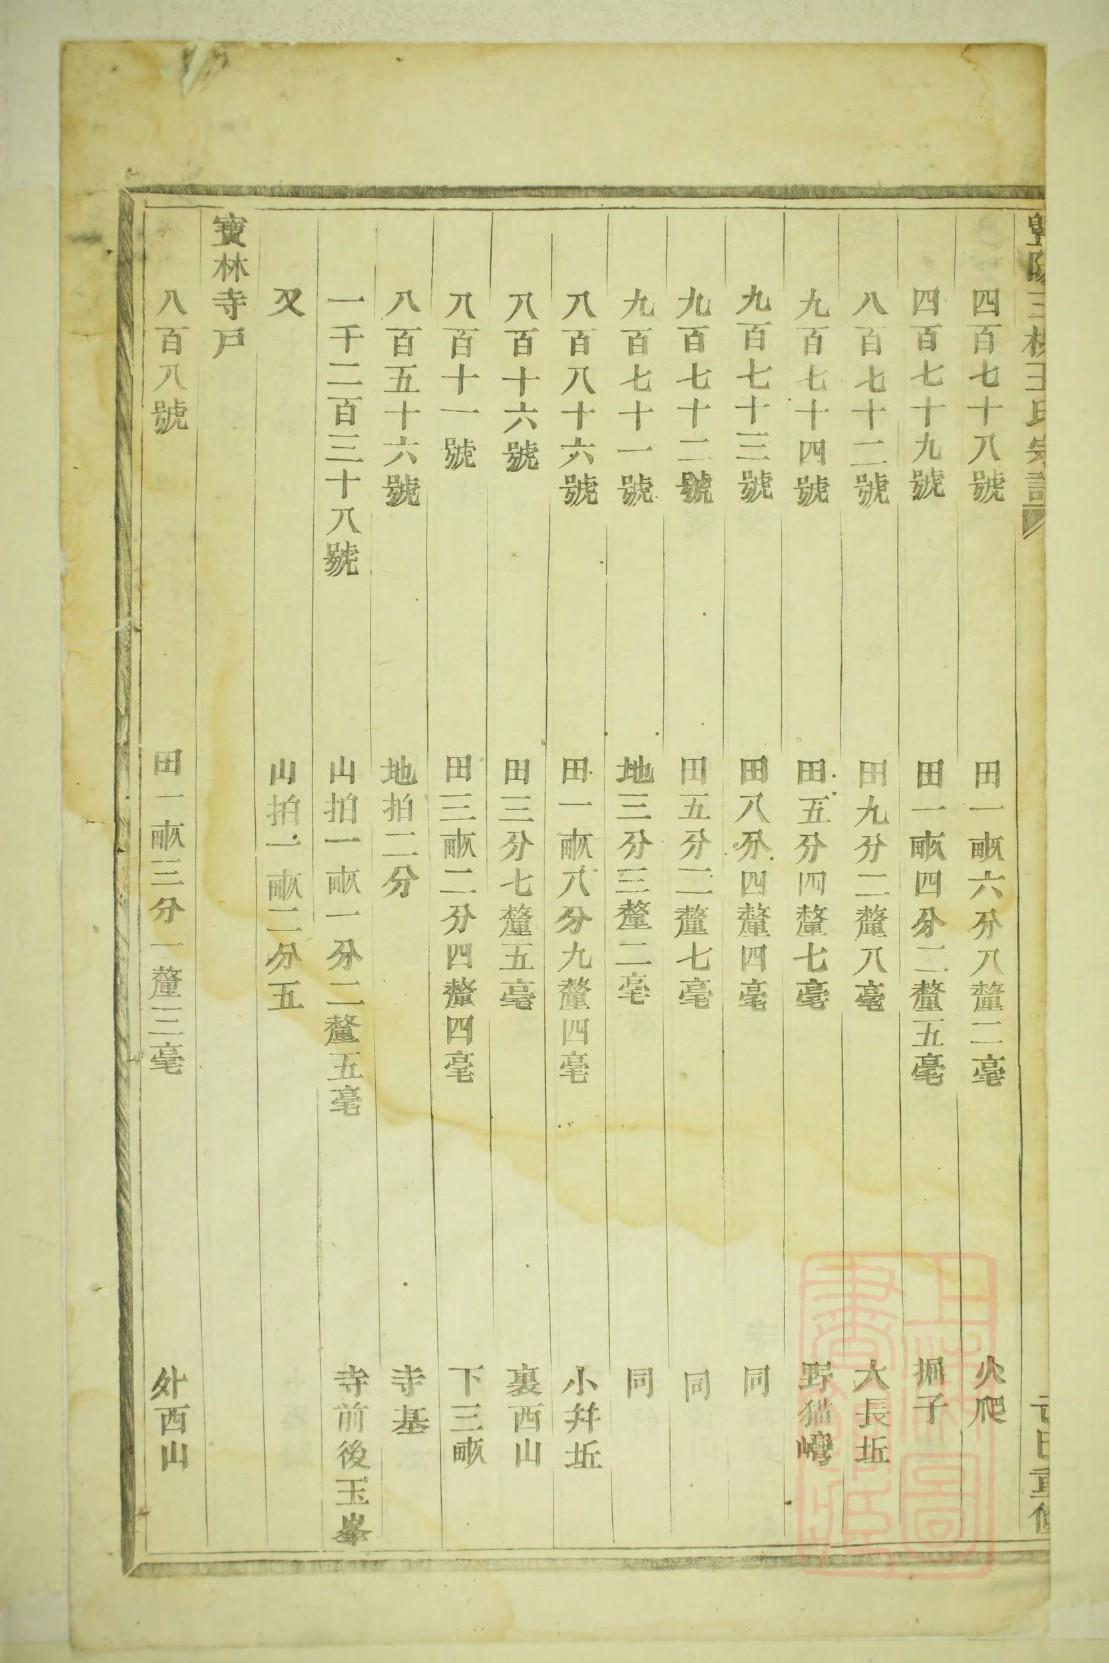 四百七十八號 田一畝六分八釐二毫 火爬
四百七十九號 田一畝四分二釐五毫 掘子
八百七十二號 田九分二釐八毫 大長坵
九百七十四號 田五分四釐七毫 野猫嶹
九百七十三號 田八分四釐四毫 同
九百七十二號 田五分二釐七毫 同
九百七十一號 地三分三釐二毫 同
八百八十六號 田一畝八分九釐四毫 小幷坵
八百十六號 田三分七釐五毫 裏西山
八百十一號 田三畝二分四釐四毫 下三畝
八百五十六號 地拍二分 寺基
一千二百三十八號 山拍一畝一分二釐五毫 寺前後玉峯
又 山拍一畝二分五
寶林寺戶
八百八號 田一畝三分一釐三毫 外西山